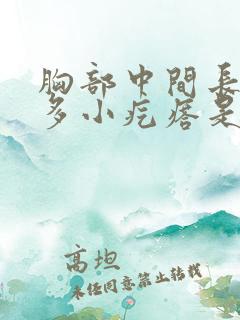 胸部中間長
多小疙瘩是
高坦
未任同意禁止转载